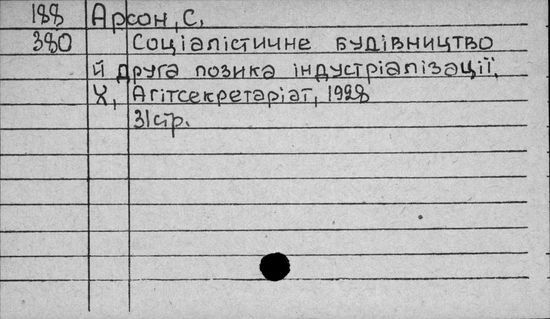 188 Арсон, С.
380 Соціалістичне будівництво
й друга позика індустріалізації,
Х, Агітсекретаріат, 1928
31 стр.